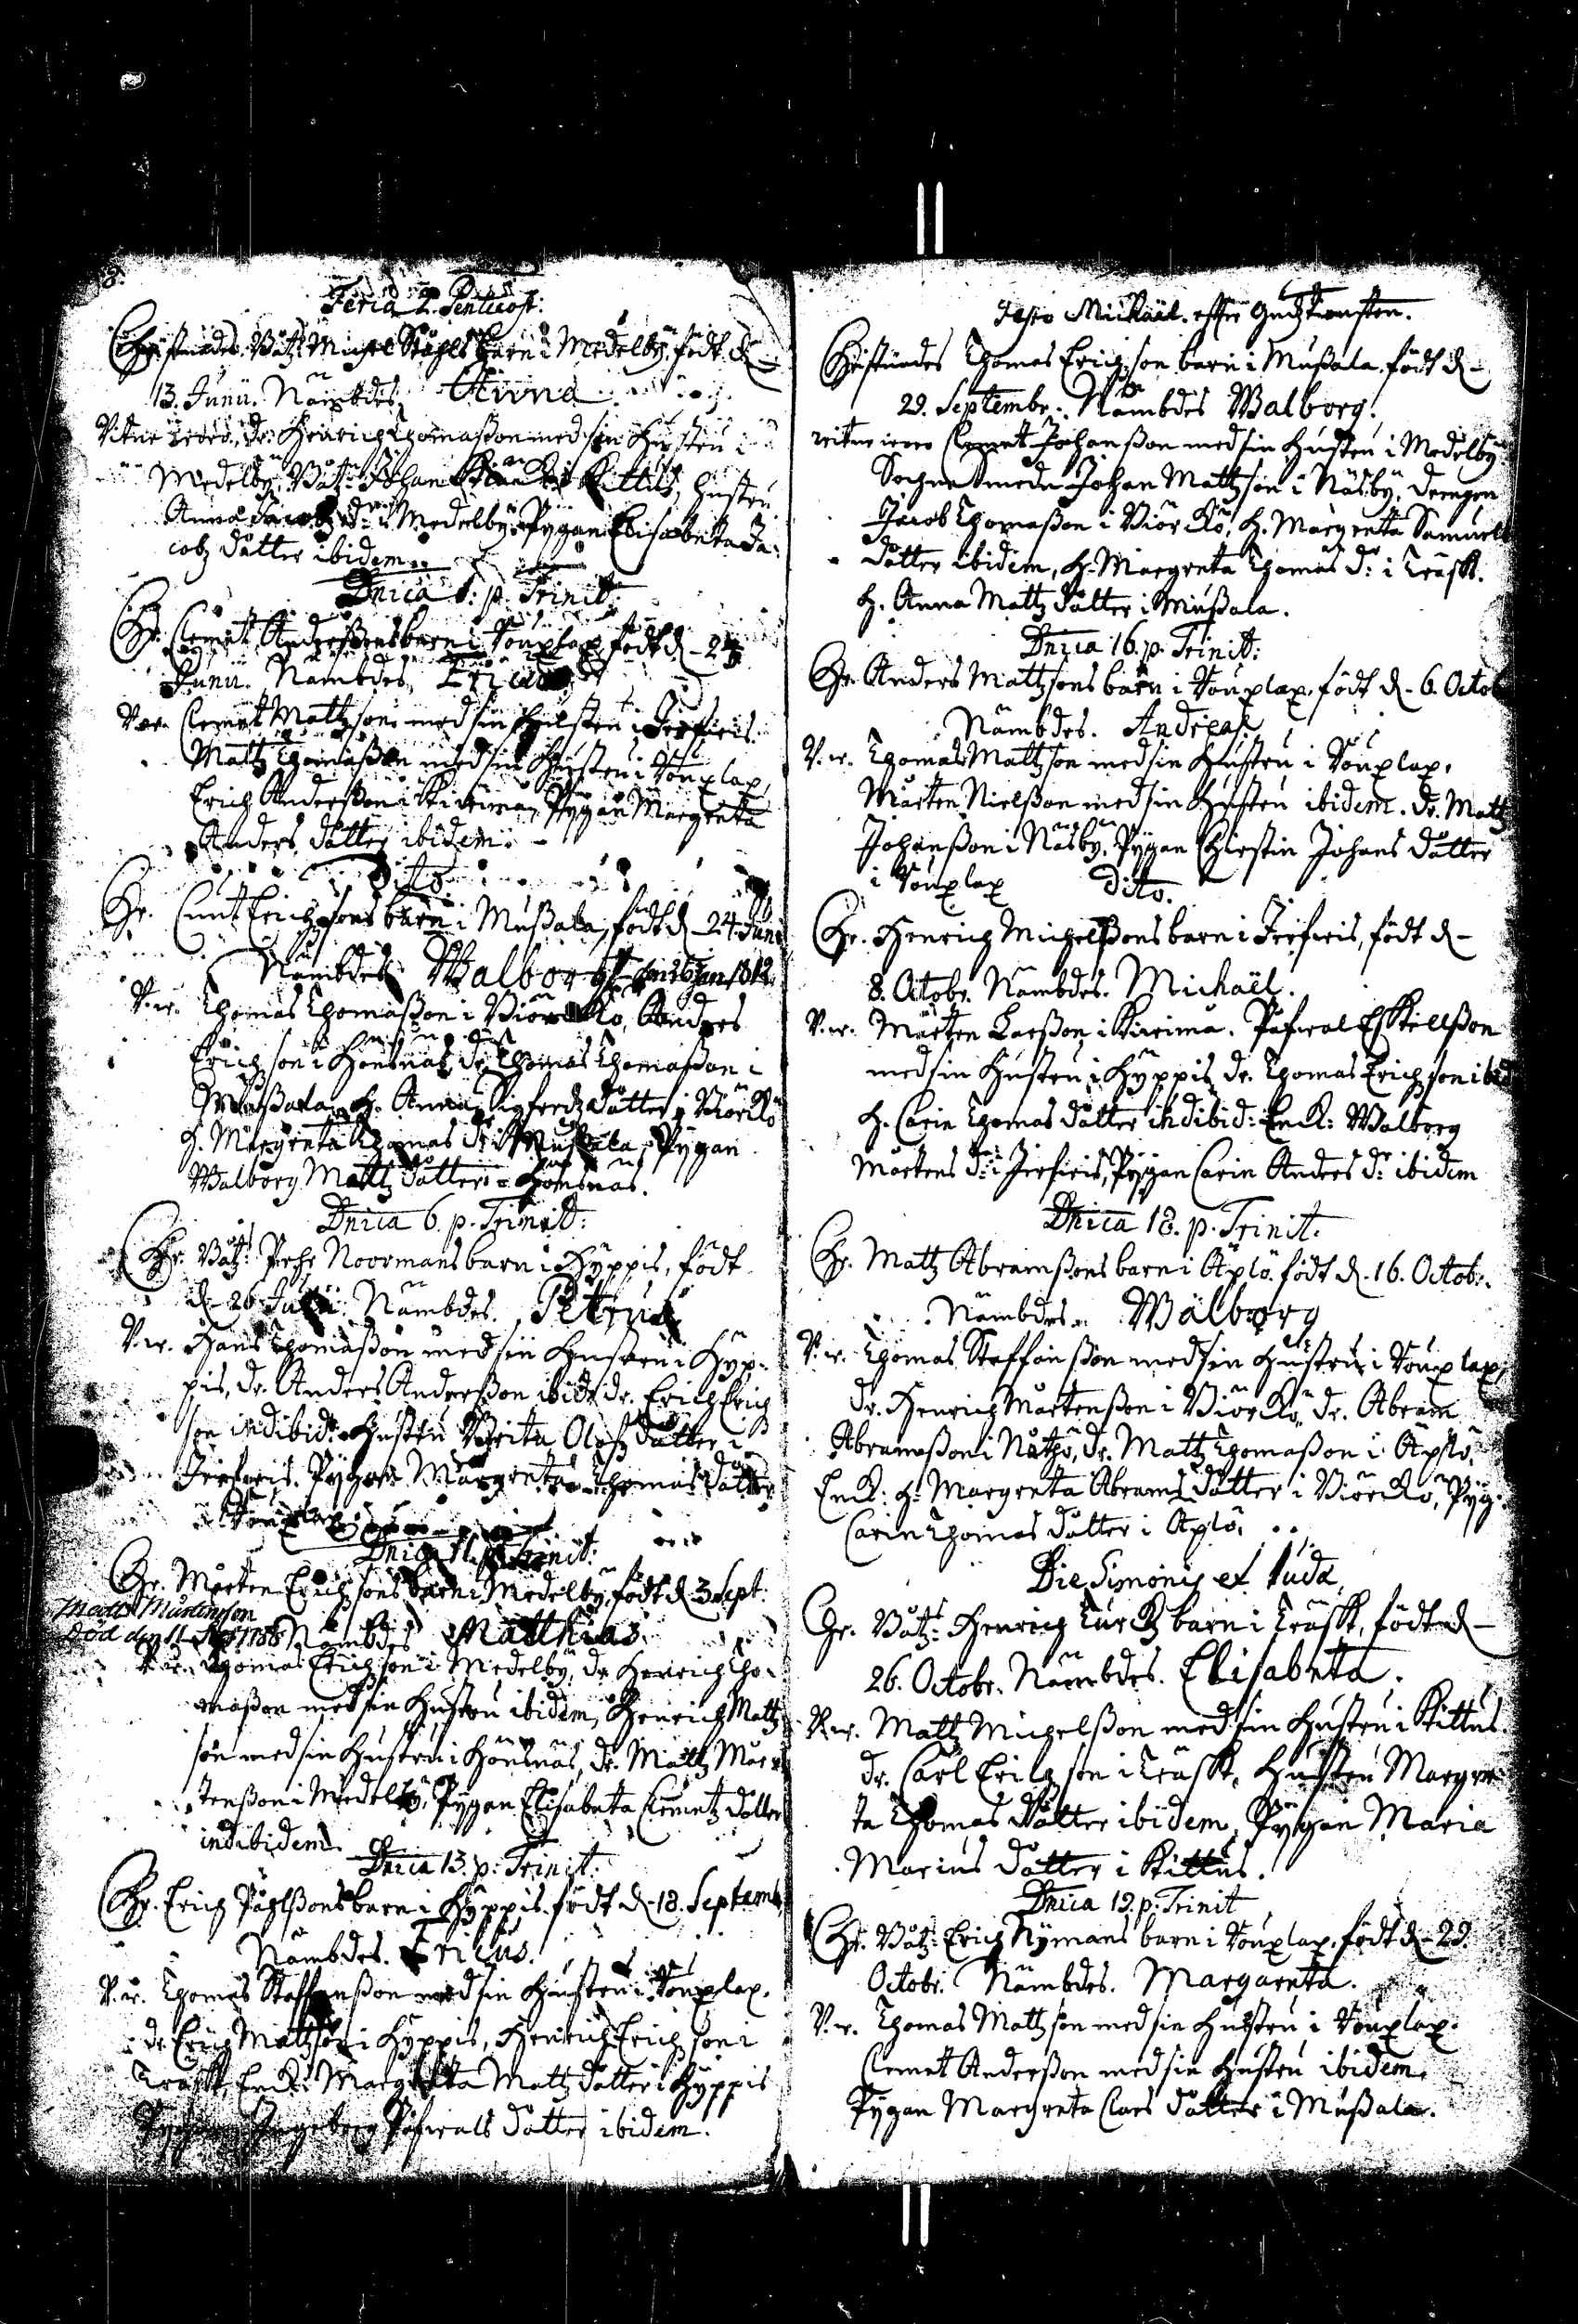 8.
Feria 2. Pentecost:
Christnades Båtz: Michel Ståhls barn i Medelby, födt d -
13. Junii. Nämbdes Anna
Vitne wero, dr: Henrich Thomaßon med sin Hustru i
Medelby, Båtz: Johan i Kittus, Hustru
Anna Jacobz dr: i Medelby, Pygan Elisabeta Ja-
cobz dåtter ibidem.
Dnica 1. p. Trinit:
Chr. Clemet Anderßons barn i Vouplax födt d - 24
Junii. Nämbdes, Ericus
V.w. Clemet Mattzson med sin Hustru i Jerfwis.
Mattz Thomaßon med sin Hustru i Vouplax,
Erich Anderßon i Kiwima, Pygan Margreta
Anders dåtter ibidem.
Dito
Chr. Cnut Erichsons barn i Mußala, födt d - 24 Juni
Nämbdes Walborg
V.w. Thomas Thomaßon i Biörckö, Anders
Erichson i Hönsnäs, dr. Thomas Thomaßon i
Mußala, H. Anna Sigfredz dåtter i Biörckö
H. Margreta Thomas dr: i Mußala, Pygan
Walborg Mattz dåtter i Hönsnäs.
Dnica 6. p. Trinit:
Chr. Båtz: Pehr Noormans barn i Hyppis, födt
d - 26 Nämbdes. Petrus
V.w. Hans Thomaßon med sin Hustru i Hyp-
pis, dr. Anders Anderßon ibid: dr. Erich Erich
son indibid: Hustru Brita Olofz dåtter i
Jerfwis. Pygan Margreta Thomas dåtter
i Vouplax.
Dnica 11. p. Trinit:
Chr. Mårten Erichsons barn i Medelby, födt d. 3 Sept:
Matts Mårtinson
död den 11 Nämbdes Matthias.
V.w. Thomas Erichson i Medelby, dr Henrich Tho-
maßon med sin Hustru ibidem, Henrich Mattz
son med sin Hustru i Hönsnäs, dr. Mattz Mår-
tenßon i Medelby, Pygan Elisabeta Clemetz dåtter
indibidem.
Dnica 13. p. Trinit:
Chr. Erich Påhlßons barn i Hyppis. födt d - 18. Septemb.
Nämbdes. Ericus.
V.w. Thomas Staffanßon med sin Hustru i Vouplax.
dr. Erich Mattzson i Hyppis, Henrich Erichson i
Träsk, Enck: Margreta Mattz dåtter i Hyppis
Pygan Ingeborg Påfwals dåtter ibidem.
Festo Michaël. effter Gudztiensten.
Christnades Thomas Erichson barn i Mußala födt d -
29. Septembr. Nämbdes Walborg.
witne wero Clemet Johanßon med sin Hustru i Medelby.
Sochne Smeden Johan Mattzson i Näsby, Drengen
Jacob Thomaßon i Biörckö, H. Margreta Samuels
dåtter ibidem, H. Margreta Thomas d: i Träsk.
H. Anna Mattz dåtter i Mußala.
Dnica 16. p. Trinit:
Chr Anders Mattzsons barn i Vouplax. födt d - 6. Octob
Nämbdes. Andreas
V.w. Thomas Mattzson med sin Hustru i Vouplax.
Mårten Nielßon med sin Hustru ibidem. dr. Mattz
Johanßon i Näsby, Pygan Chirstin Johans dåtter
i Vouplax
Dito.
Chr. Henrich Michelßons barn i Jerfwis, födt d -
8. Octobr. Nämbdes. Michaël.
V.w. Mårten Larßon i Kiwima. Påfwal Eskillßon
med sin Hustru i Hyppis dr. Thomas Erichson ibid
H. Carin Thomas dåtter indibid: Enck: Walborg
Mårtens d:r i Jerfwis, Pygan Carin Anders d:r ibidem
Dnica 18. p. Trinit.
Chr. Mattz Abramßons barn i Äplö. födt d. 16. Octobr.
Nämbdes. Walborg
V.w. Thomas Staffanßon med sin Hustru i Vouplax,
dr. Henrich Mårtenßon i Biörckö, dr. Abram
Abramßon i Nåthö, dr. Mattz Thomaßon i Äplö.
Enck: H. Margreta Abrams dåtter i Biörckö, Pyg:
Carin Thomas dåtter i Äplö.
Die Simonis et Judæ.
Chr. Båtz: Henrich Turckz barn i Träsk, födt d -
26. Octobr. Nämbdes. Elisabeta.
V.w. Mattz Michelßon med sin Hustru i Kittus.
dr. Carl Erichson i Träsk, Hustru Margre-
ta Thomas dåtter ibidem, Pygan Maria
Marius dåtter i Kittus.
Dnica 19. p. Trinit
Chr. Båtz: Erich Nymans barn i Vouplax. födt d - 29.
Octobr. Nämbdes. Margareta.
V.w. Thomas Mattzson med sin Hustru i Vouplax.
Clemet Anderßon med sin Hustru ibidem.
Pygan Margreta Clars dåtter i Mußala.